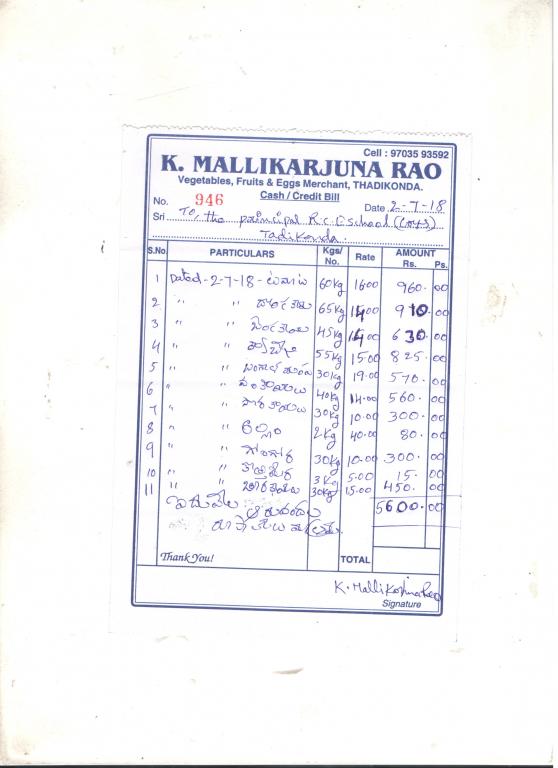 Cell : 97035 93592
K. MALLIKARJUNA RAO
Vegetables, Fruits & Eggs Merchant, THADIKONDA.
Cash / Credit Bill
No. 946 Date 2-7-18
Sri To, the principal R.c.E School
Tadikonda.
S.No. PARTICULARS Kgs/ No. Rate AMOUNT Rs. Ps.
1 Dated-2-7-18- టమాట 60kg 16 00 960. 00
2 " " 65kg 14.00 910.00
3 " " 45kg 14.00 630.00
4 " " 55kg 15 00 825.00
5 " " 30kg 19.00 570.00
6 " " వంకాయలు 40kg 14.00 560.00
7 " " 30kg 10.00 300.00
8 " " అల్లం 2kg 40.00 80.00
9 " " గోంగూర 30kg 10.00 300.00
10 " " కొత్తిమీర 3kg 5.00 15.00
11 " " 30kg 15.00 450.00
ఐదువేల ఆరువందల 5600.00
Thank You! TOTAL
K. Mallikarjuna Rao
Signature